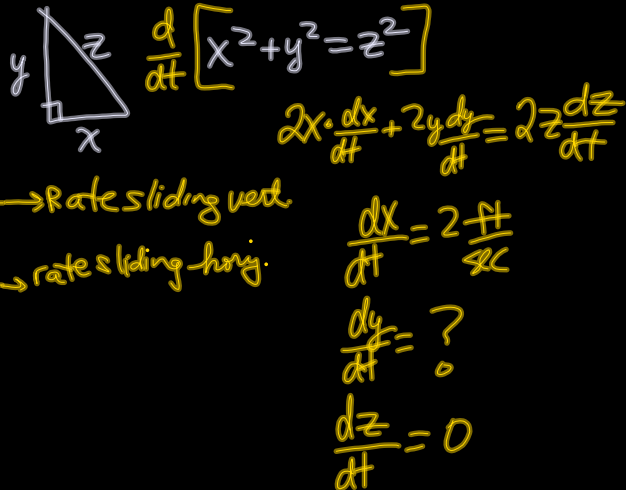 y
z
x
d/dt [x² + y² = z²]
2x · dx/dt + 2y dy/dt = 2z dz/dt
→ Rate sliding vert.
→ rate sliding horiz.
dx/dt = 2 ft/sec
dy/dt = ?
dz/dt = 0